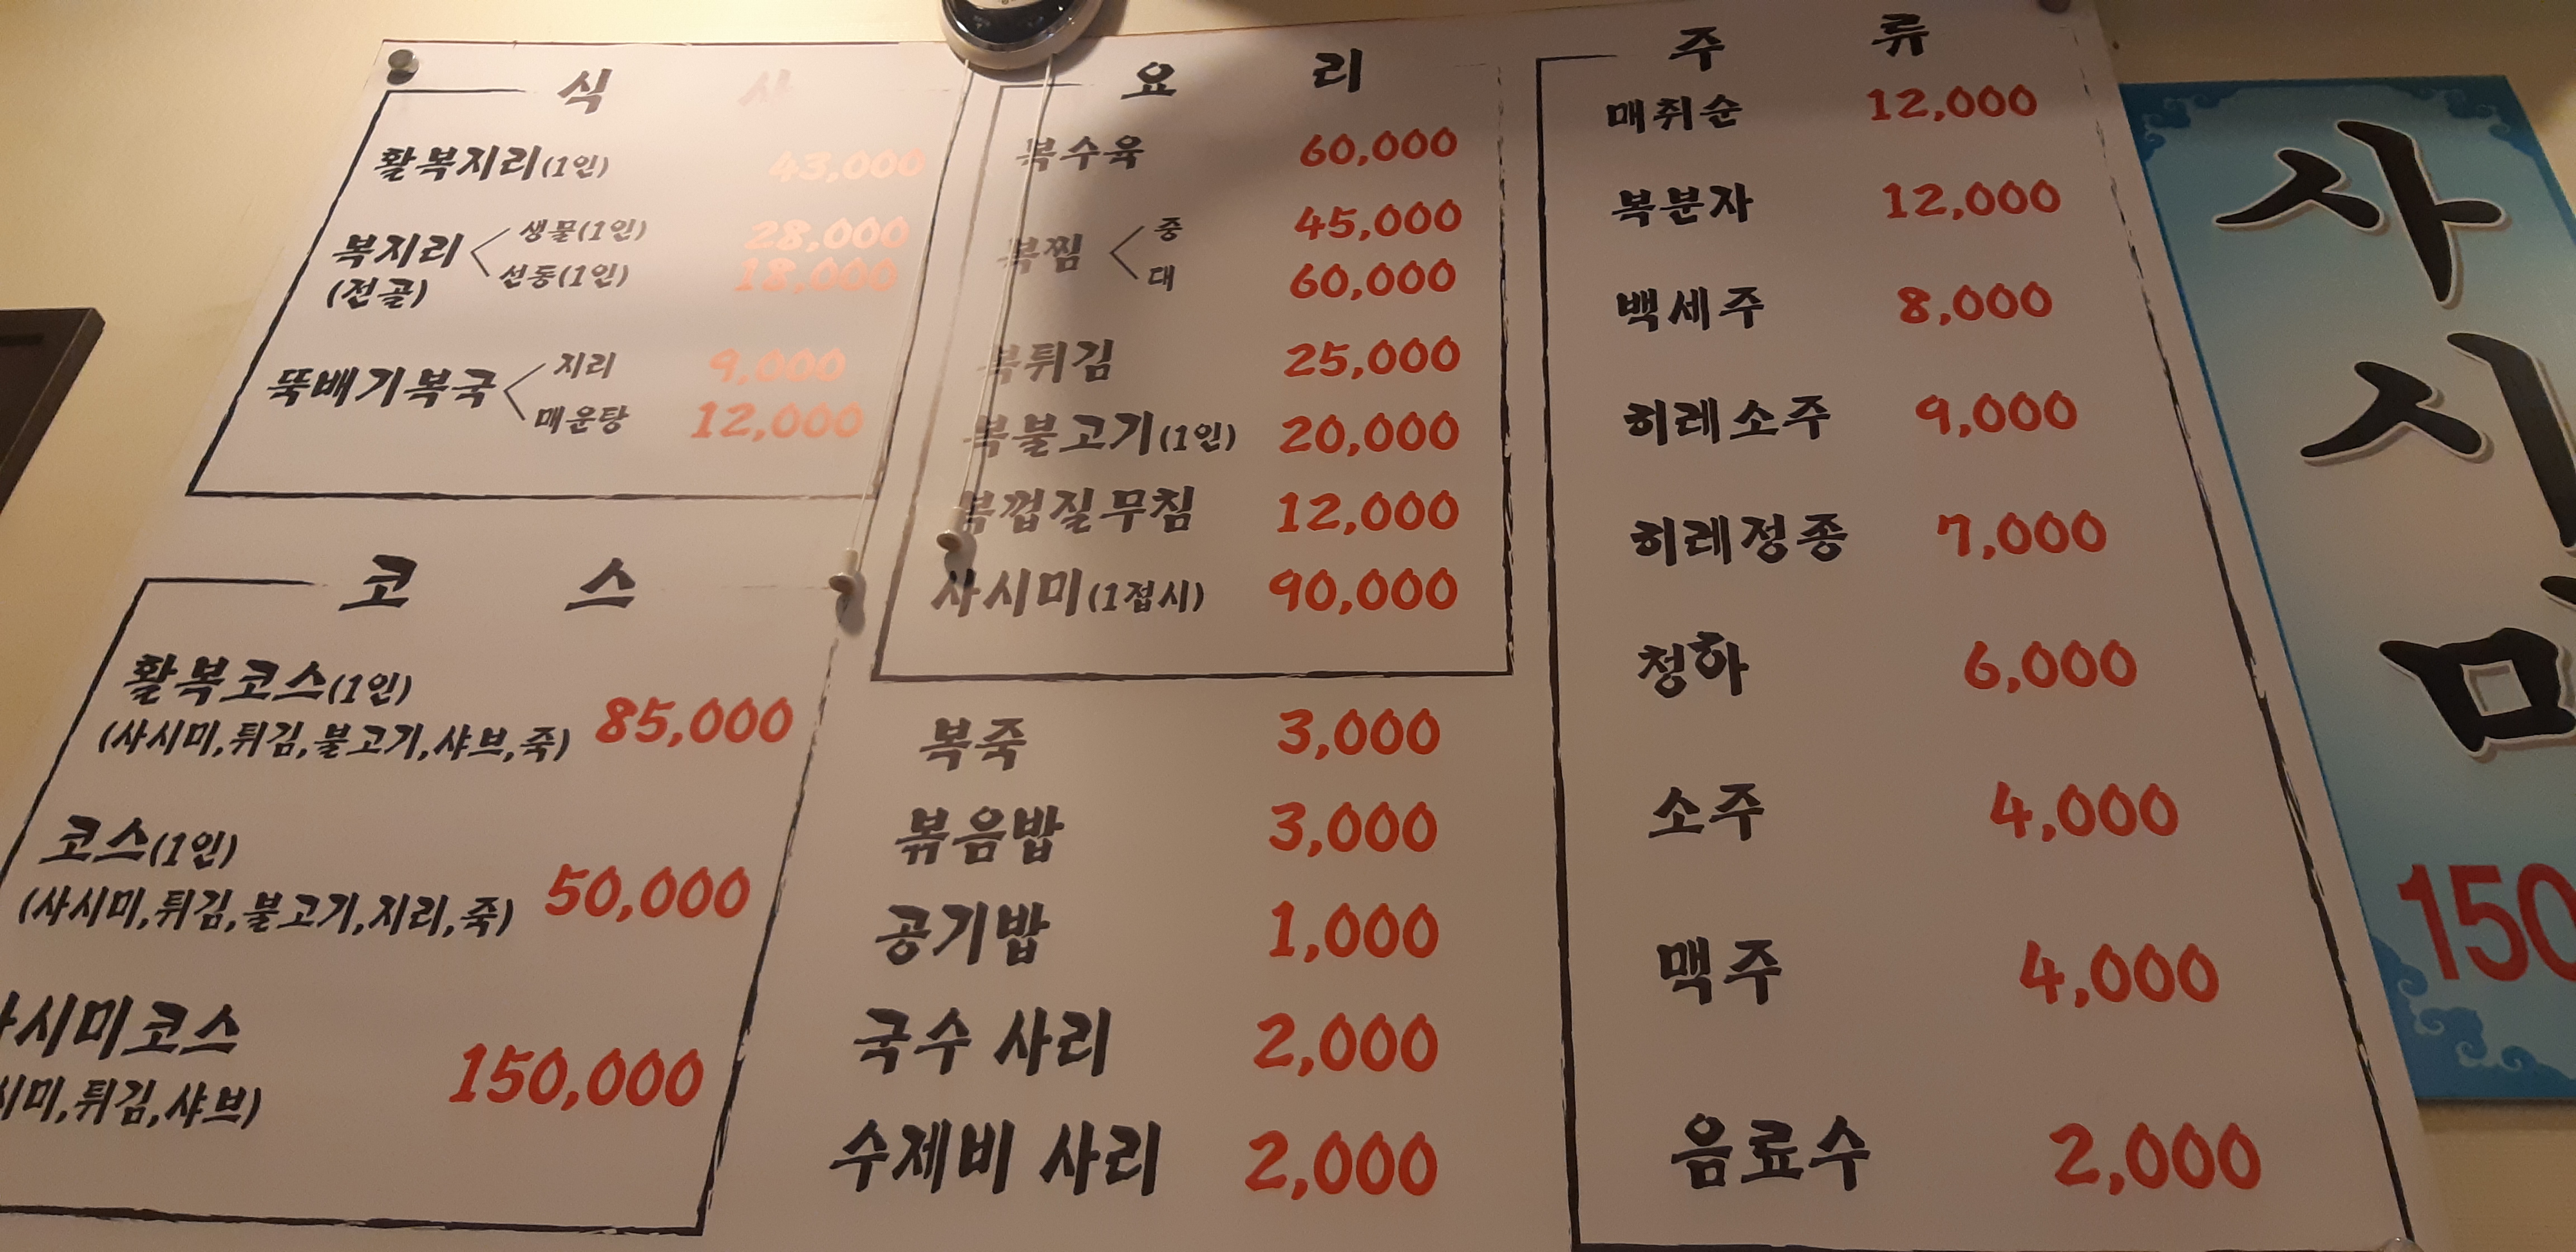 식 사
활복지리(1인) 43,000
복지리(전골)
생물(1인) 28,000
선동(1인) 18,000
뚝배기복국
지리 9,000
매운탕 12,000
코 스
활복코스(1인)
(사시미,튀김,불고기,샤브,죽) 85,000
코스(1인)
(사시미,튀김,불고기,지리,죽) 50,000
사시미코스
시미,튀김,샤브) 150,000
요 리
복수육 60,000
복찜
중 45,000
대 60,000
복튀김 25,000
복불고기(1인) 20,000
복껍질무침 12,000
사시미(1접시) 90,000
복죽 3,000
볶음밥 3,000
공기밥 1,000
국수 사리 2,000
수제비 사리 2,000
주 류
매취순 12,000
복분자 12,000
백세주 8,000
히레소주 9,000
히레정종 7,000
청하 6,000
소주 4,000
맥주 4,000
음료수 2,000
사시미
150